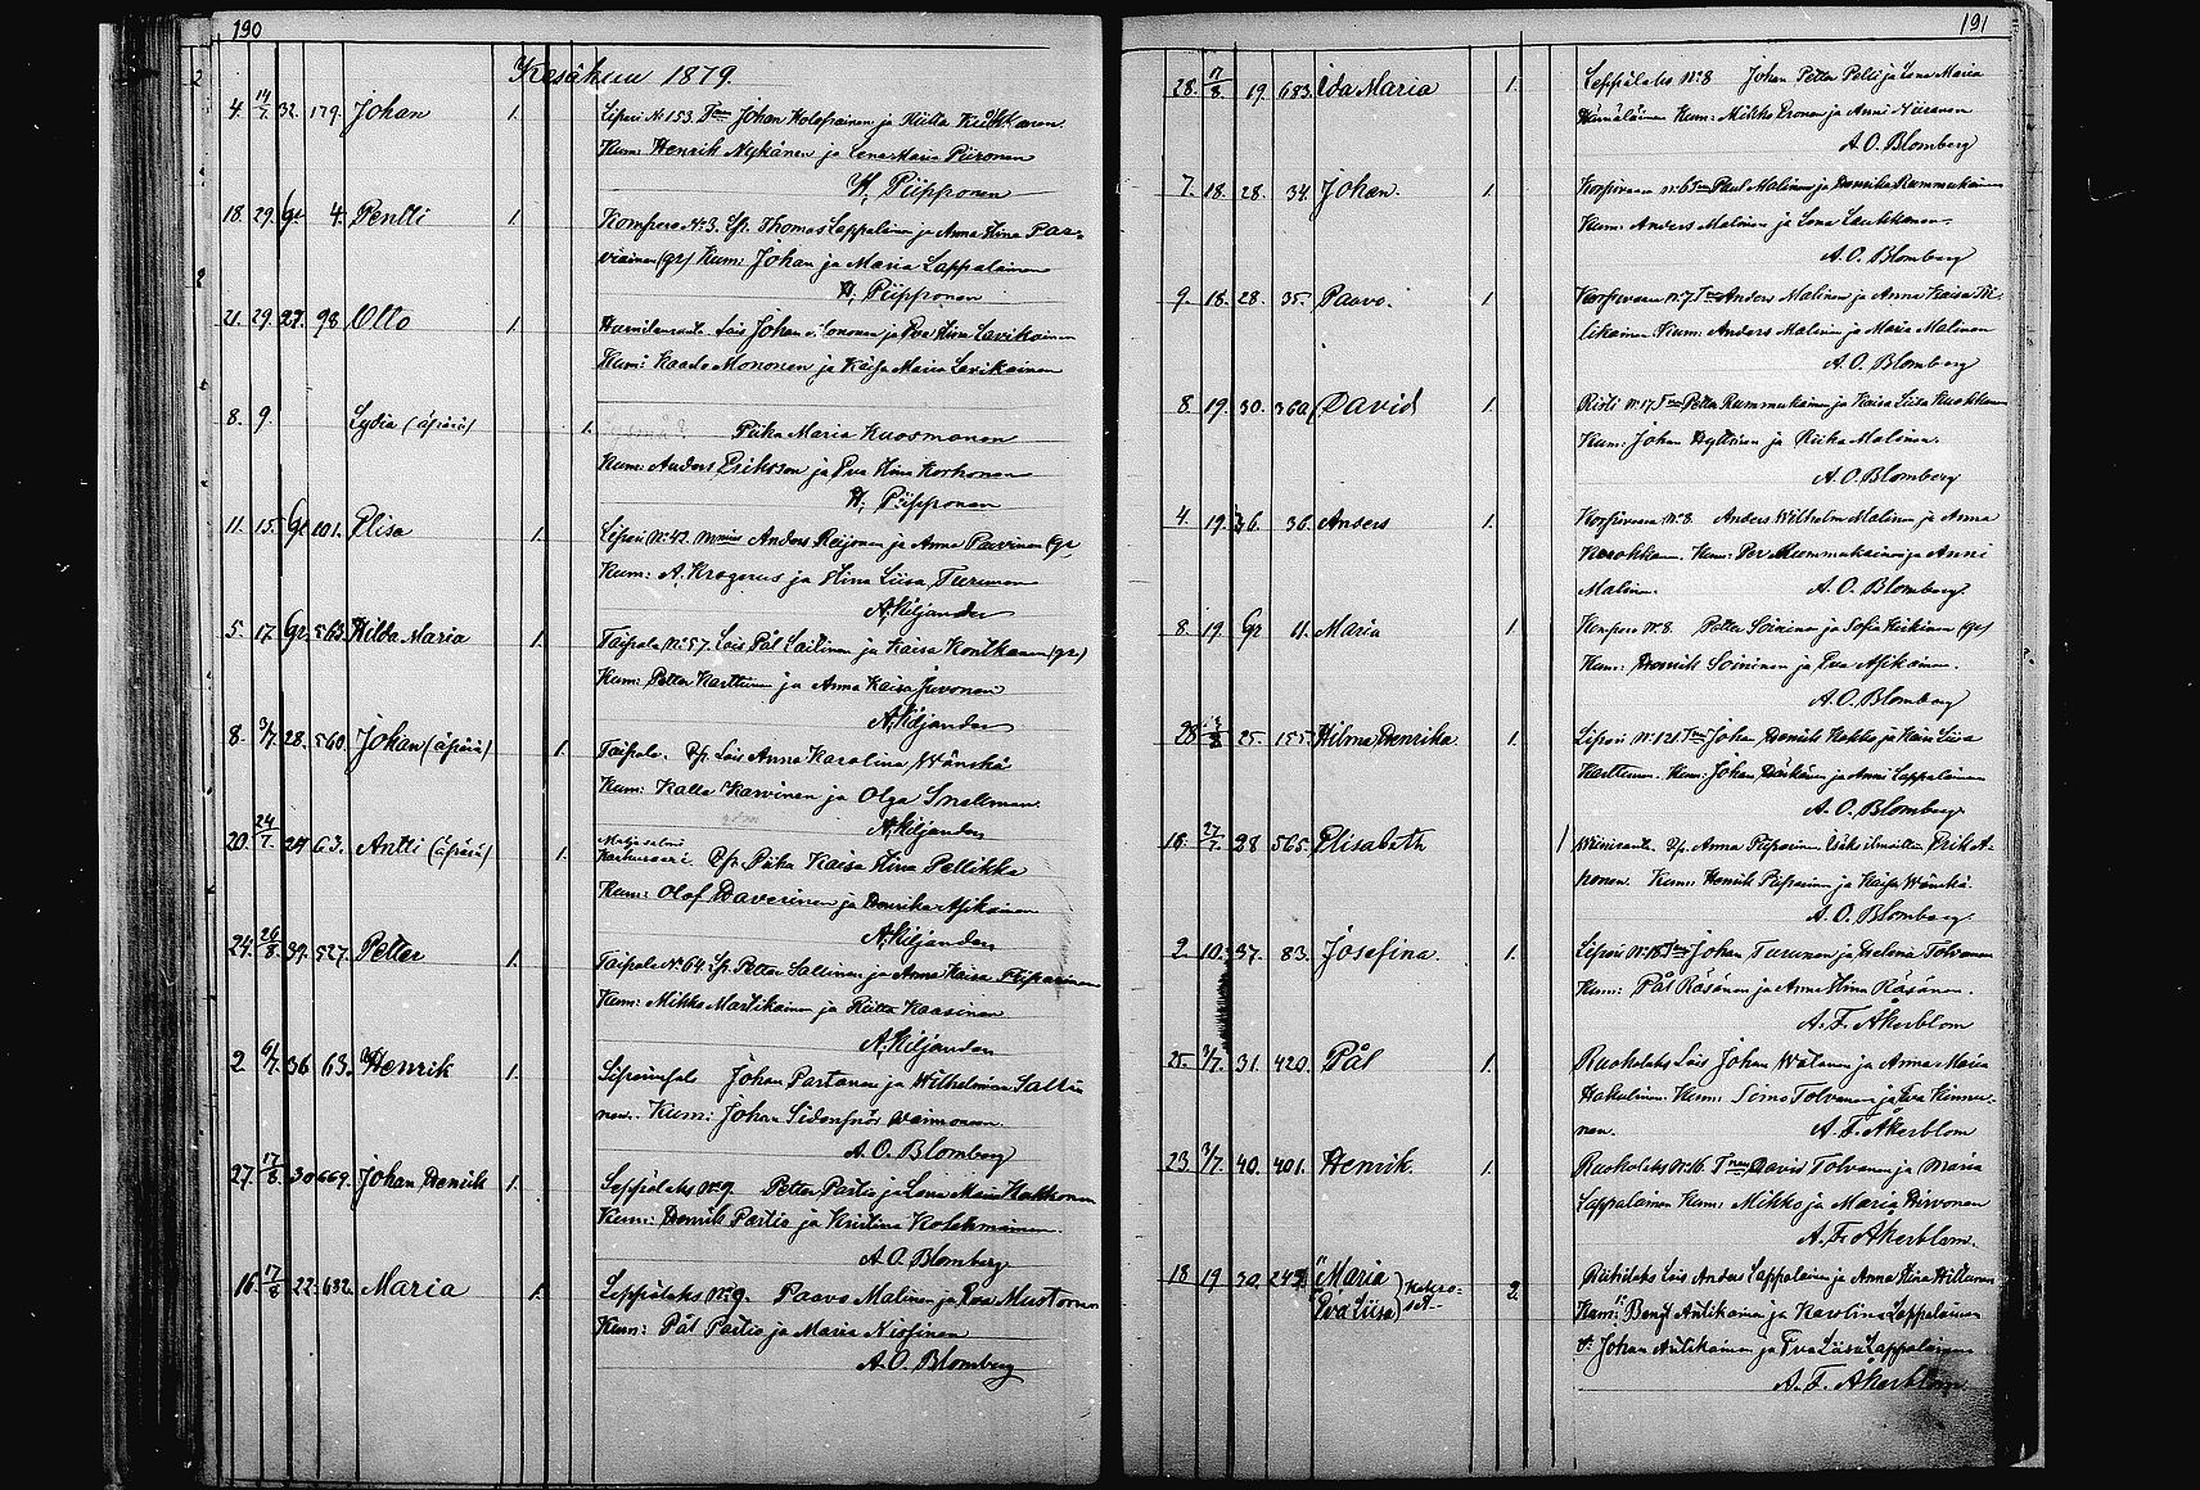 190
Kesäkuu 1879.
4. 14/7. 32. 179. Johan 1. Liperi No 153. Johan Kolehmainen ja Riitta
Kum: Henrik Nykänen ja Lena Maria Piironen
H. Piipponen
18. 29. Gr 4. Pentti 1. Kompero No 3. Lp. Thomas Lappalainen ja Anna Stina Par-
viainen (gr) Kum: Johan ja Maria Lappalainen
H. Piipponen
21. 29. 27. 98 Otto 1. Lois Johan Mononen ja Eva Stina Lavikainen
Kum: Kaarlo Mononen ja Kaisa Maria Lavikainen
8. 9. Lydia (äpärä) 1. Piika Maria Kuosmanen
Kum: Anders Eriksson ja Eva Stina Korhonen
H. Piipponen
11. 15. Gr 101. Elisa 1. Liperi No 42. Anders Reijonen ja Anna Parvinen (gr
Kum: A. Krogerus ja Stina Liisa Turunen
A. Kiljander
5. 17. Gr. 563. Hilda Maria 1. Taipale No 57. Lois Pål Laitinen ja Kaisa Kontkanen (gr.)
Kum: Petter Karttunen ja Anna Kaisa Juvonen
A. Kiljander
8. 3/7. 28. 560. Johan (äpärä) 1. Taipale. Lois Anna Karolina Wänskä
Kum: Kalle Karvinen ja Olga Snellman.
A. Kiljander
20. 24/7. 24 63. Antti (äpärä) 1. Mattisalmi
Karhunsaari Piika Kaisa Stina Pellikka
Kum: Olof Haverinen ja Henrika Asikainen
A. Kiljander
24. 26/8. 39. 527. Petter 1. Taipale No 64. Lp. Petter Sallinen ja Anna Kaisa Piiparinen
Kum: Mikko Martikainen ja Riitta Kaasinen
A. Kiljander
2 6/7. 36 63. Henrik 1. Johan Partanen ja Wilhelmina Salli
nen. Kum: Johan Waimonsen.
A. O. Blomberg
27. 17/8. 30 669. Johan Henrik 1. Leppälaks No 9. Petter Partio ja Lena Maria Hakkonen
Kum: Henrik Partio ja Kristina Kolehmainen.
A. O. Blomberg
16. 17/8 22. 682. Maria 1. Leppälaks No 9. Paavo Malinen ja Eva Mustonen
Kum: Pål Partio ja Maria
A. O. Blomberg
191
28. 17/8. 19. 683. Ida Maria 1. Leppälaks No 8 Johan Petter Pelli ja Lena Maria
Hämäläinen Kum: Mikko Eronen ja Anni Niiranen
A. O. Blomberg
7. 18. 28. 34. Johan. 1. Korpivaara No 6 Paul Malinen ja Henrika Rummukainen
Kum: Anders Malinen ja Lena Laukkanen.
A. O. Blomberg
9. 18. 28. 35. Paavo. 1. Korpivaara No 7. Anders Malinen ja Anna Kaisa
likainen. Kum: Anders Malinen ja Maria Malinen
A. O. Blomberg
8. 19. 30. 360 David 1. Risti No 17. Petter Rummukainen ja Kaisa Liisa Kuokkanen
Kum: Johan Hyttinen ja Riika Malinen.
A. O. Blomberg
4. 19. 36. 36. Anders 1. Korpivaara No 8. Anders Wilhelm Malinen ja Anna
Kum: Per Rummukainen ja Anni
Malinen. A. O. Blomberg
8. 19. Gr 11. Maria 1. Kompero No 8. Petter Soininen ja Sofia Keikinen (gr)
Kum: Henrik Soininen ja Eva Asikainen.
A. O. Blomberg
28 25. 155. Hilma Henrika 1. Liperi No 121. Johan Henrik Kokko ja Kaisa Liisa
Karttunen. Kum: Johan Härkänen ja Anni Lappalainen
A. O. Blomberg
18. 27/7. 28 565. Elisabeth 1 Anna Piiparinen. Isäksi ilmoitettiin Erik A-
honen. Kum: Henrik Piiparinen ja Kaisa Wänskä.
A. O. Blomberg.
2. 10. 37. 83. Josefina. 1. Liperi Johan Turunen ja Helena Tolvanen
Kum: Pål Räsänen ja Anna Stina Räsänen.
A. F. Åkerblom
25. 3/7. 31. 420. Pål 1. Ruokolaks Lois Johan Wätanen ja Anna Maria
Hakulinen. Kum: Simo Tolvanen ja Eva Kinnu-
nen. A. F. Åkerblom
23 3/7. 40. 401. Henrik. 1. Ruokolaks No 16. David Tolvanen ja Maria
Lappalainen Kum: Mikko ja Maria Hirvonen
A. F. Åkerblom.
18 19 30. Maria } kakso-
Eva Liisa } set. 2. Lois Anders Lappalainen ja Anna Stina Hiltunen
Kum: Bengt Antikainen ja Karolina Lappalainen
Johan Antikainen ja Eva Liisa Lappalainen
A. F. Åkerblom